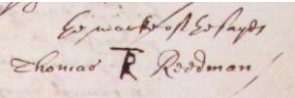 the marke of the sayde
Thomas R Reedman